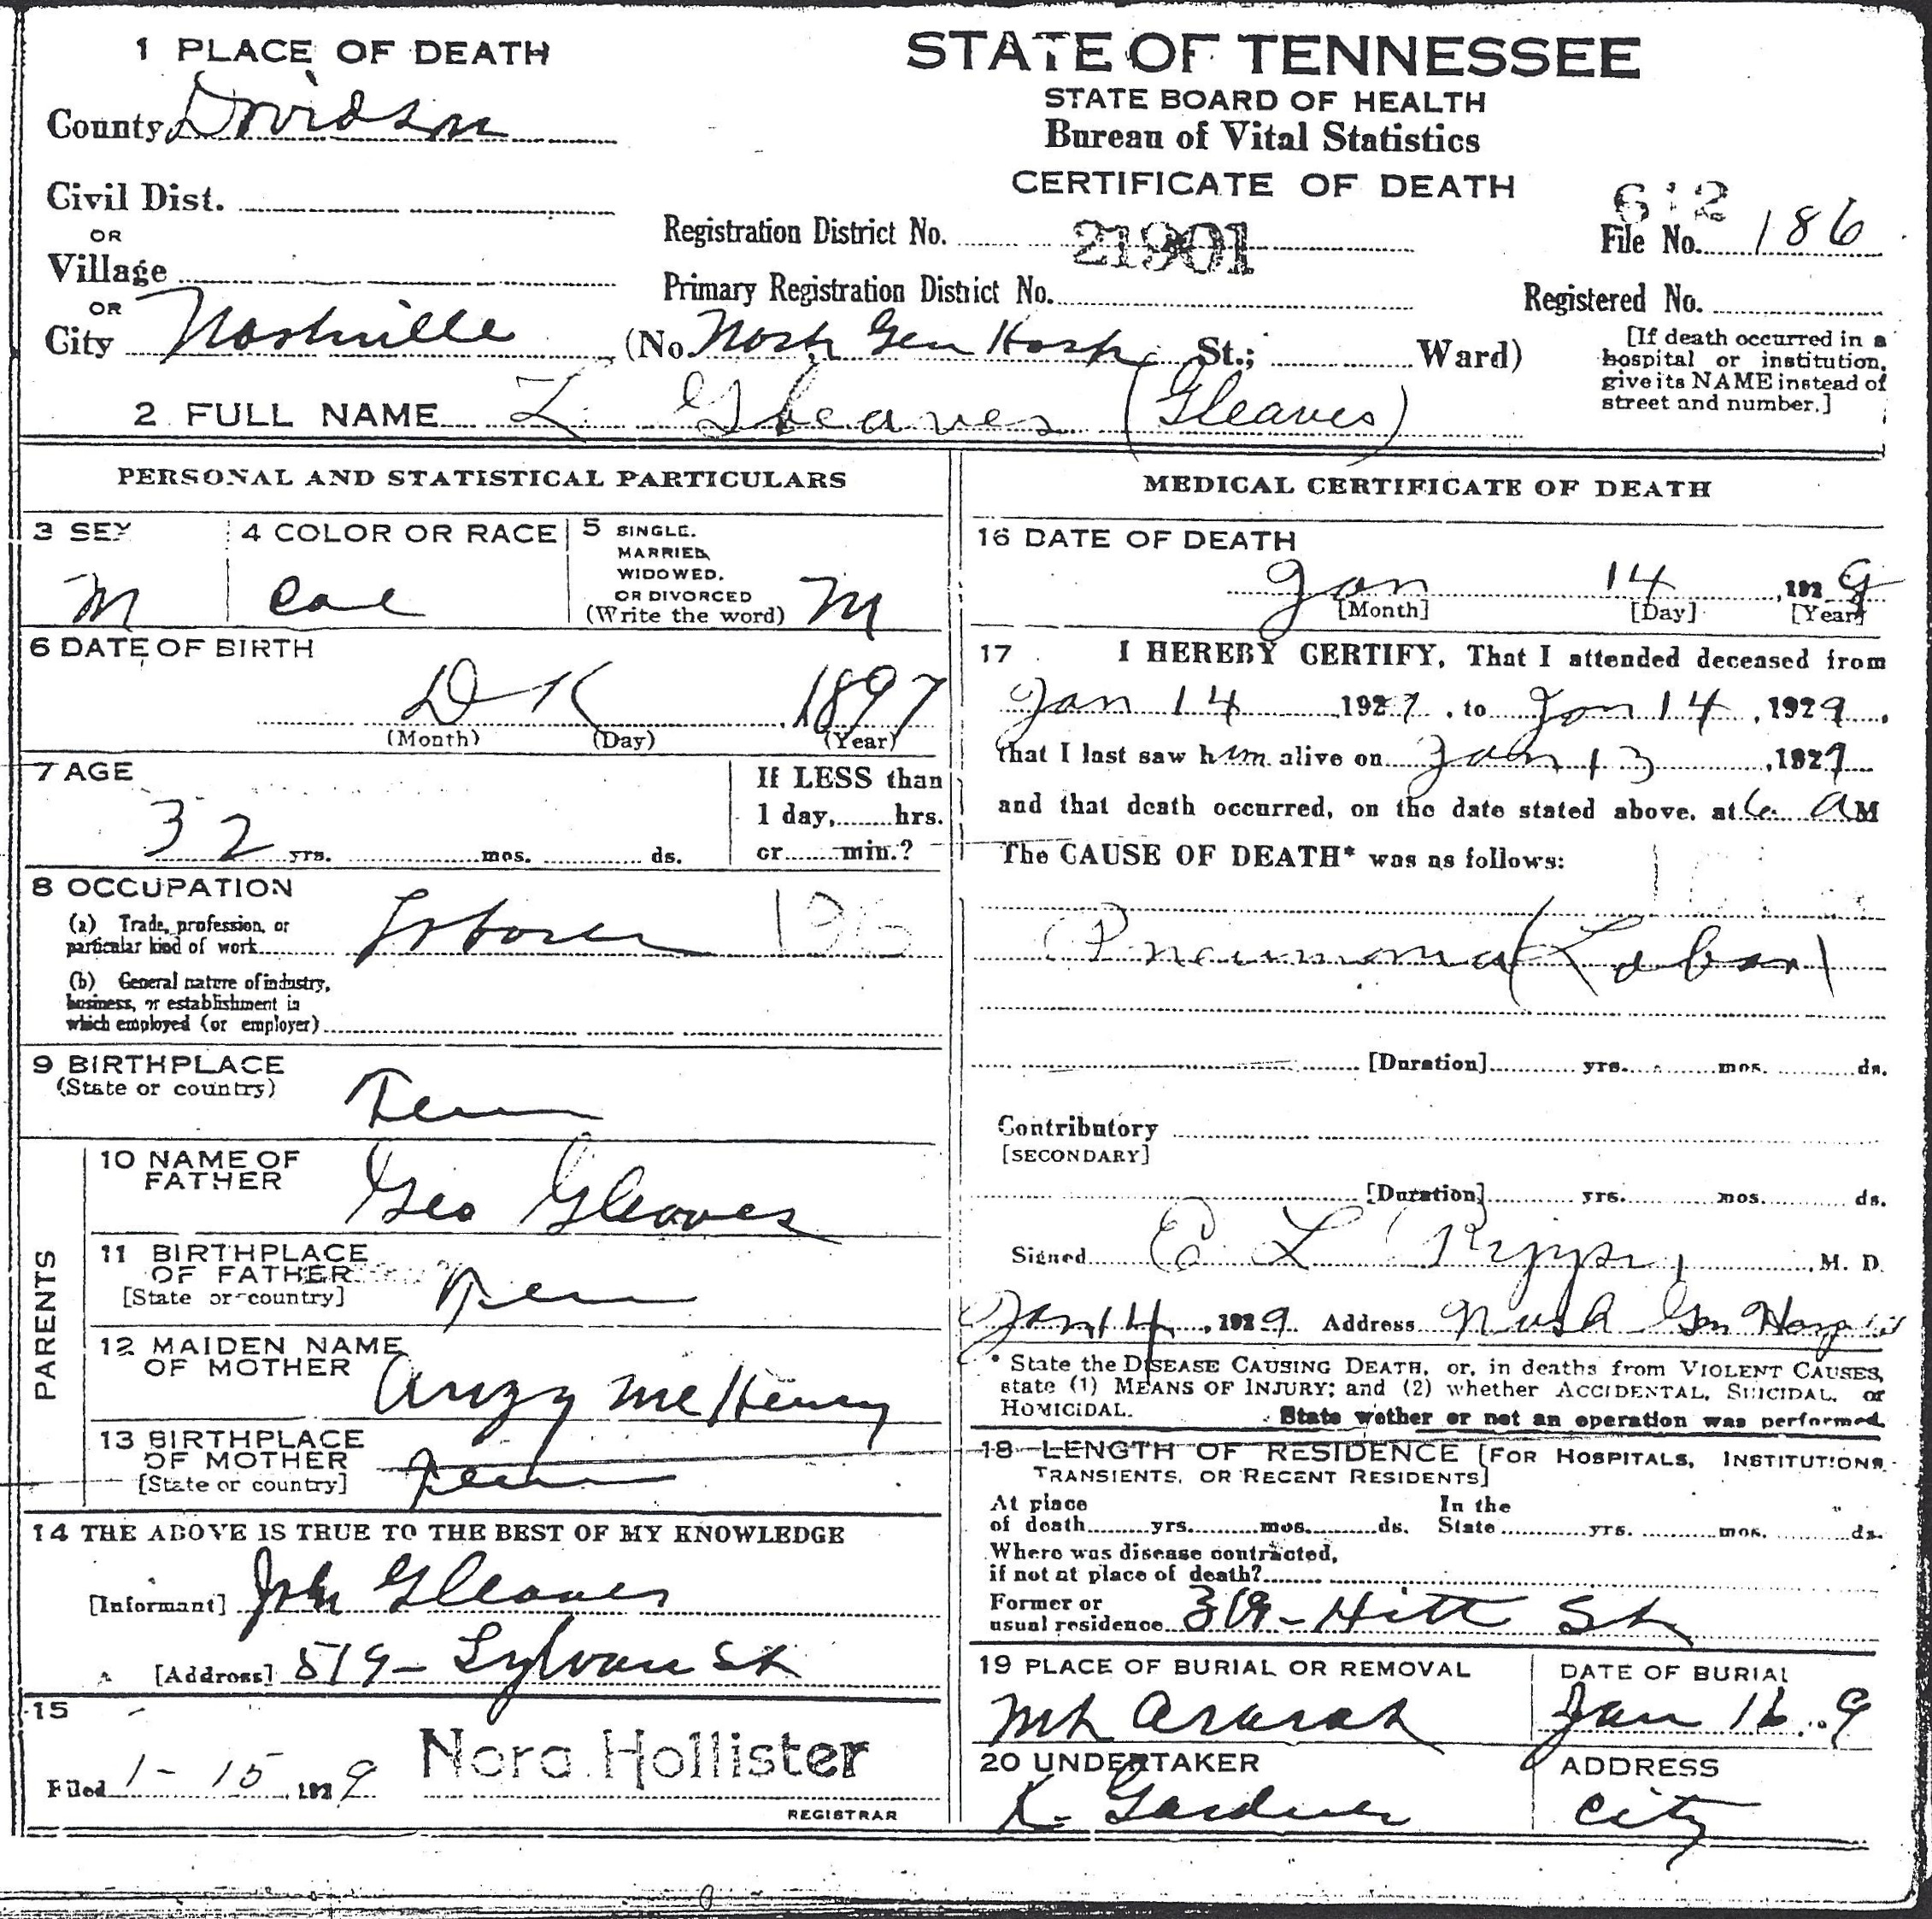 1 PLACE OF DEATH
County Davidson
Civil Dist.
OR
Village
OR
City Nashville (No. Nash Gen Hosp St.; Ward)
STATE OF TENNESSEE
STATE BOARD OF HEALTH
Bureau of Vital Statistics
CERTIFICATE OF DEATH
Registration District No. 21901
Primary Registration District No.
612
File No. 186
Registered No.
[If death occurred in a
hospital or institution,
give its NAME instead of
street and number.]
2 FULL NAME L. Gleaves (Gleaves)
PERSONAL AND STATISTICAL PARTICULARS
3 SEX
M
4 COLOR OR RACE
Col
5 SINGLE.
MARRIED,
WIDOWED.
OR DIVORCED
(Write the word) M
6 DATE OF BIRTH
DK 1897
(Month) (Day) (Year)
7 AGE
32 yrs. mos. ds.
If LESS than
1 day, hrs.
or min.?
8 OCCUPATION
(a) Trade, profession, or
particular kind of work Laborer
(b) General nature of industry,
business, or establishment in
which employed (or employer)
9 BIRTHPLACE
(State or country) Tenn
PARENTS
10 NAME OF
FATHER Geo Gleaves
11 BIRTHPLACE
OF FATHER
[State or country] Tenn
12 MAIDEN NAME
OF MOTHER McHenry
13 BIRTHPLACE
OF MOTHER
[State or country] Tenn
14 THE ABOVE IS TRUE TO THE BEST OF MY KNOWLEDGE
[Informant] John Gleaves
[Address] 519 - Sylvan St
15
Filed 1 - 15, 1929 Nora Hollister
REGISTRAR
MEDICAL CERTIFICATE OF DEATH
16 DATE OF DEATH
Jan 14, 1929
[Month] [Day] [Year]
17 I HEREBY CERTIFY, That I attended deceased from
Jan 14 1929, to Jan 14, 1929,
that I last saw him alive on Jan 13, 1929
and that death occurred, on the date stated above, at 6 AM
The CAUSE OF DEATH* was as follows:
Pneumonia (Lobar)
[Duration] yrs. mos. ds.
Contributory
[SECONDARY]
[Duration] yrs. mos. ds.
Signed E L, M. D.
Jan 14, 1929 Address Nash Gen Hospital
* State the DISEASE CAUSING DEATH, or, in deaths from VIOLENT CAUSES,
state (1) MEANS OF INJURY; and (2) whether ACCIDENTAL, SUICIDAL, or
HOMICIDAL. State wether or not an operation was performed.
18 LENGTH OF RESIDENCE [FOR HOSPITALS, INSTITUTIONS,
TRANSIENTS, OR RECENT RESIDENTS]
At place In the
of death yrs. mos. ds. State yrs. mos. ds.
Where was disease contracted,
if not at place of death?
Former or
usual residence 319 - Hitt St
19 PLACE OF BURIAL OR REMOVAL
Mt Ararat
DATE OF BURIAL
Jan 16 9
20 UNDERTAKER
K. Gardner
ADDRESS
City